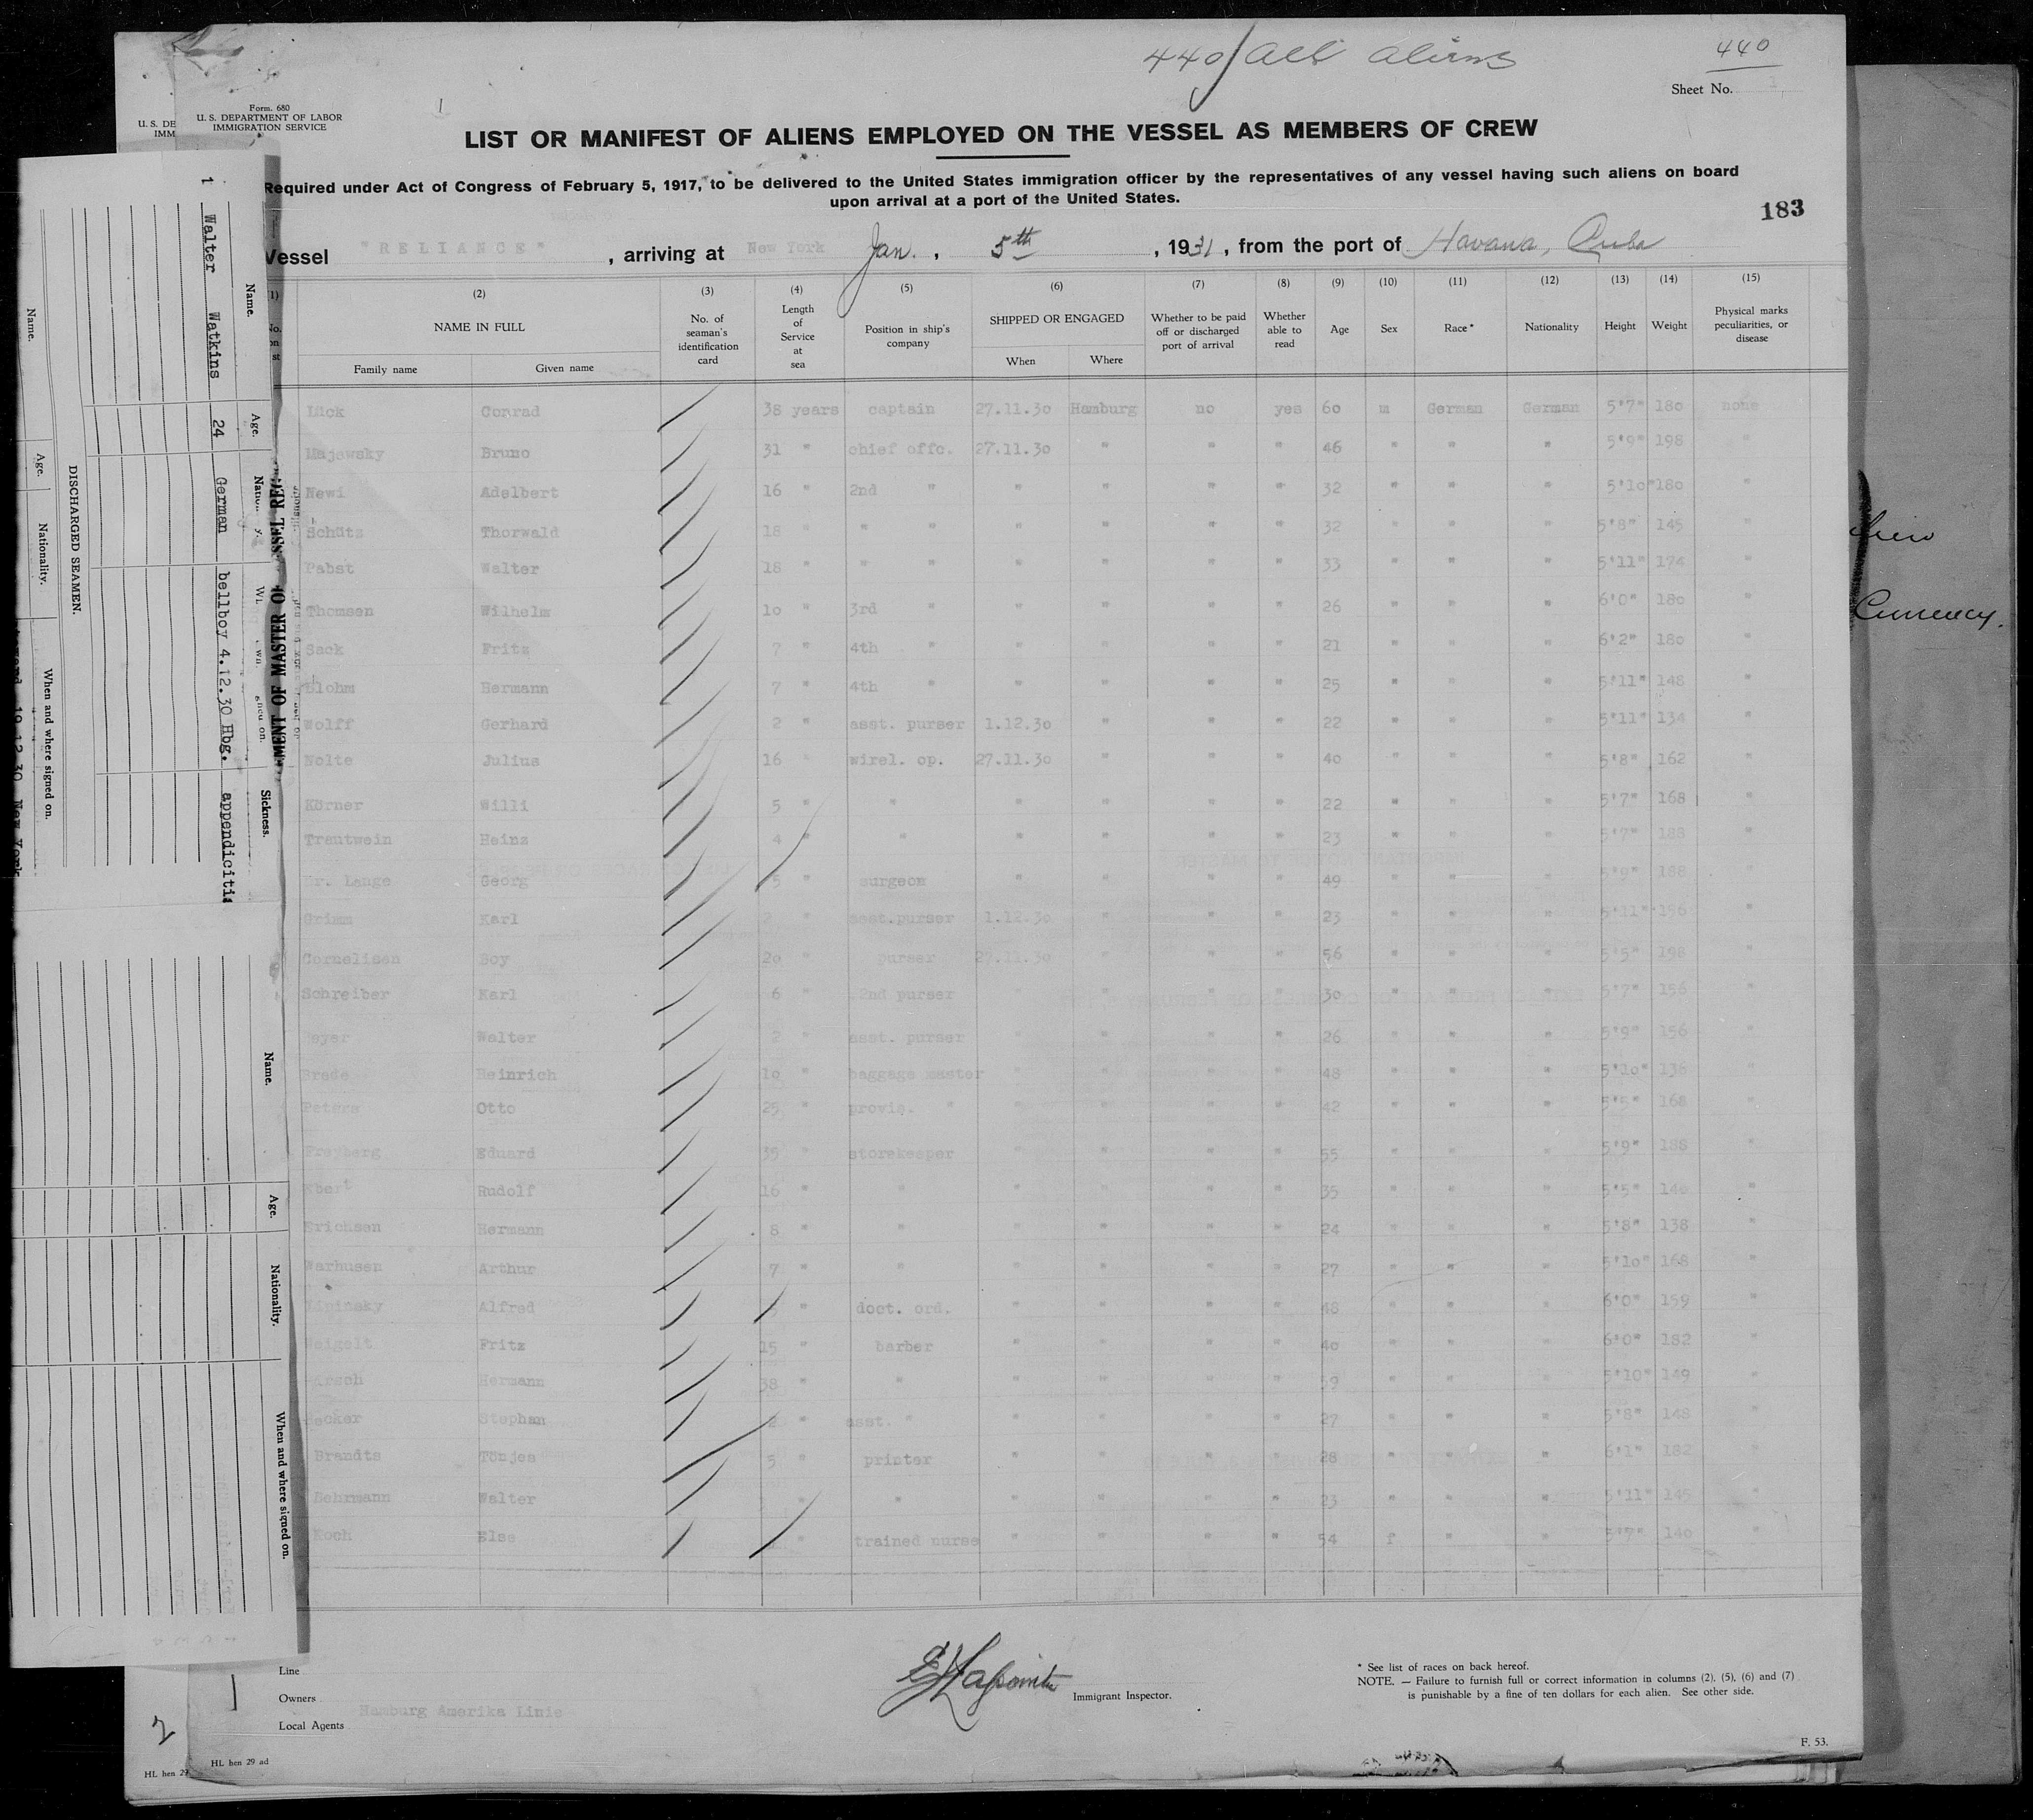 440/ All aliens
440
Sheet No.
Form. 680
U. S. DEPARTMENT OF LABOR
IMMIGRATION SERVICE
U. S. DE
IMM
LIST OR MANIFEST OF ALIENS EMPLOYED ON THE VESSEL AS MEMBERS OF CREW
Required under Act of Congress of February 5, 1917, to be delivered to the United States immigration officer by the representatives of any vessel having such aliens on board
upon arrival at a port of the United States.
183
Vessel "RELIANCE", arriving at New York Jan., 5th, 1931, from the port of Havana, Cuba
(1) (2) (3) (4) (5) (6) (7) (8) (9) (10) (11) (12) (13) (14) (15)
NAME IN FULL No. of seaman's identification card Length of Service at sea Position in ship's company SHIPPED OR ENGAGED Whether to be paid off or discharged port of arrival Whether able to read Age Sex Race* Nationality Height Weight Physical marks peculiarities, or disease
Family name Given name When Where
Conrad 38 years captain 27.11.30 Hamburg no yes 60 m German German 5'7" 180 none
Majewsky Bruno 31 " chief offc. 27.11.30 " " " 46 " " " 5'9" 198 "
Newi Adelbert 16 " 2nd " " " " " 32 " " " 5'10" 180 "
Schütz Thorwald 18 " " " " " " " 32 " " " 5'8" 145 "
Pabst Walter 18 " " " " " " " 33 " " " 5'11" 174 "
Thomsen Wilhelm 10 " 3rd " " " " " 26 " " " 6'0" 180 "
Sack Fritz " 4th " " " " " 21 " " " 6'2" 180 "
Blohm Hermann 7 " 4th " " " " " 25 " " " 5'11" 148 "
Wolff Gerhard 2 " asst. purser 1.12.30 " " " 22 " " " 5'11" 134 "
Nolte Julius 16 " wirel. op. 27.11.30 " " " 40 " " " 5'8" 162 "
Körner Willi 5 " " " " " " 22 " " " 5'7" 168 "
Trautwein Heinz 4 " " " " " " 23 " " " 5'7" 188 "
Dr. Lange Georg 5 " surgeon " " " " 49 " " " 5'9" 188 "
Grimm Karl 2 " asst.purser 1.12.30 " " " 23 " " " 5'11" 156 "
Cornelisen Boy 20 " purser 27.11.30 " " " 56 " " " 5'5" 198 "
Schreiber Karl 6 " 2nd purser " " " " 30 " " " 5'7" 156 "
Walter 2 " asst. purser " " " " 26 " " " 5'9" 156 "
Brade Heinrich 10 " baggage master " " " " 48 " " " 5'10" 136 "
Peters Otto 25 " provis. " " " " " 42 " " " 5'5" 168 "
Freyberg Eduard 35 " storekeeper " " " " 55 " " " 5'9" 188 "
Ebert Rudolf 16 " " " " " " 35 " " " 5'5" 140 "
Erichsen Hermann 8 " " " " " " 24 " " " 5'8" 138 "
Warhusen Arthur 7 " " " " " " 27 " " " 5'10" 168 "
Lipinsky Alfred " doct. ord. " " " " 48 " " " 6'0" 159 "
Weigelt Fritz 15 " barber " " " " 40 " " " 6'0" 182 "
Hermann 38 " " " " " " 59 " " " 5'10" 149 "
Stephan " asst. " " " " " 27 " " " 5'8" 148 "
Brandts Tönjes 5 " printer " " " " 28 " " " 6'1" 182 "
Behrmann Walter " " " " " " 23 " " " 5'11" 145 "
Koch Else " trained nurse " " " " 54 f " " 5'7" 140 "
Line
Owners
Hamburg Amerika Linie
Local Agents
Immigrant Inspector.
* See list of races on back hereof.
NOTE. — Failure to furnish full or correct information in columns (2), (5), (6) and (7)
is punishable by a fine of ten dollars for each alien. See other side.
F. 53.
HL hen 29 ad
HL hen 29
2
Name. Age. Sickness.
1 Walter Watkins 24 German bellboy 4.12.30 Hbg. appendicitis
DISCHARGED SEAMEN.
Name. Age. Nationality. When and where signed on.
19.12.30 New York
Name. Age. Nationality. When and where signed on.
MENT OF MASTER OF
Currency.